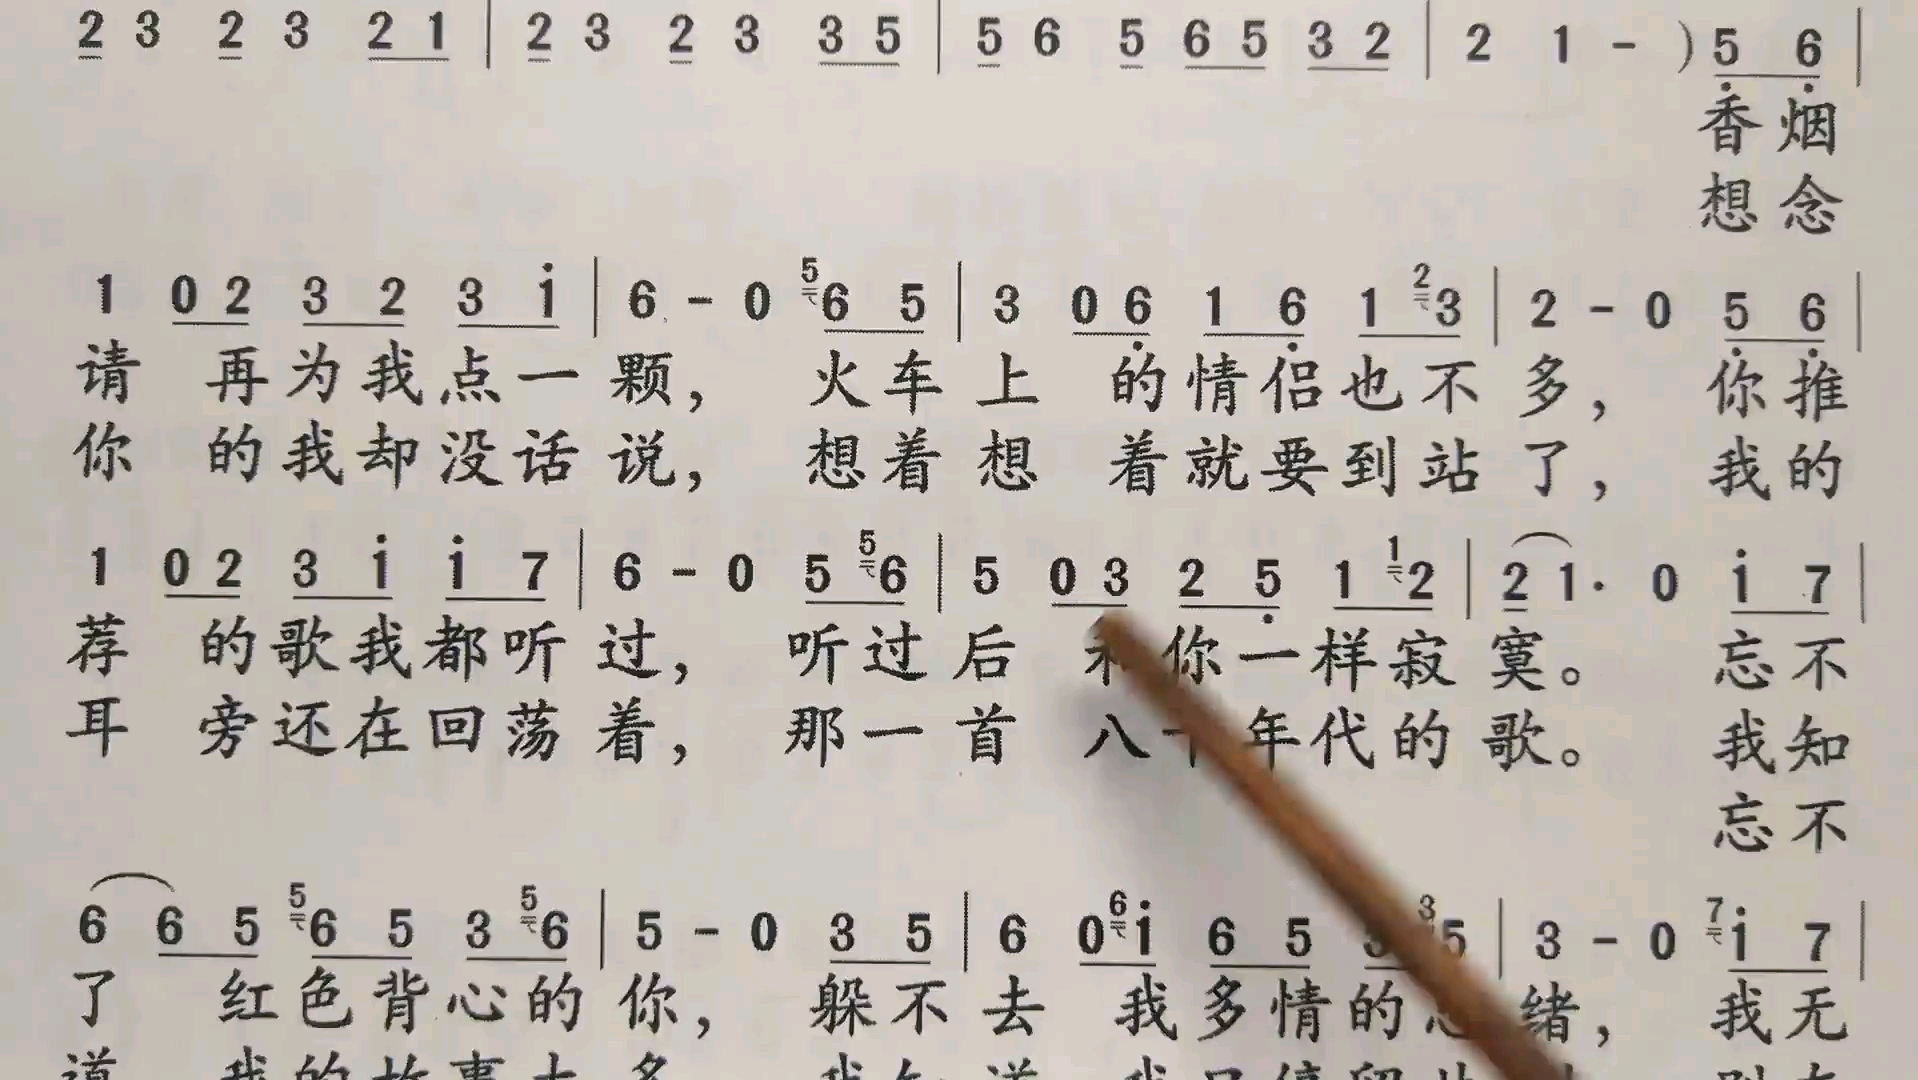 2 3 2 3 2 1 | 2 3 2 3 3 5 | 5 6 5 6 5 3 2 | 2 1 - ) 5̣ 6̣ |
香烟
想念
1 0 2 3 2 3 i | 6 - 0 ⁵6 5 | 3 0 6̣ 1 6̣ 1 ²3 | 2 - 0 5̣ 6̣ |
请 再为我点一颗， 火车上 的情侣也不多， 你推
你 的我却没话说， 想着想 着就要到站了， 我的
1 0 2 3 i i 7 | 6 - 0 5 ⁵6 | 5 0 3 2 5̣ 1 ¹2 | 2 1· 0 i 7 |
荐 的歌我都听过， 听过后 你一样寂寞。 忘不
耳 旁还在回荡着， 那一首 八 年代的歌。 我知
忘不
6 6 5 ⁵6 5 3 ⁵6 | 5 - 0 3 5 | 6 0 ⁶i 6 5 ³5 | 3 - 0 ⁷i 7 |
了 红色背心的你， 躲不去 我多情的 绪， 我无